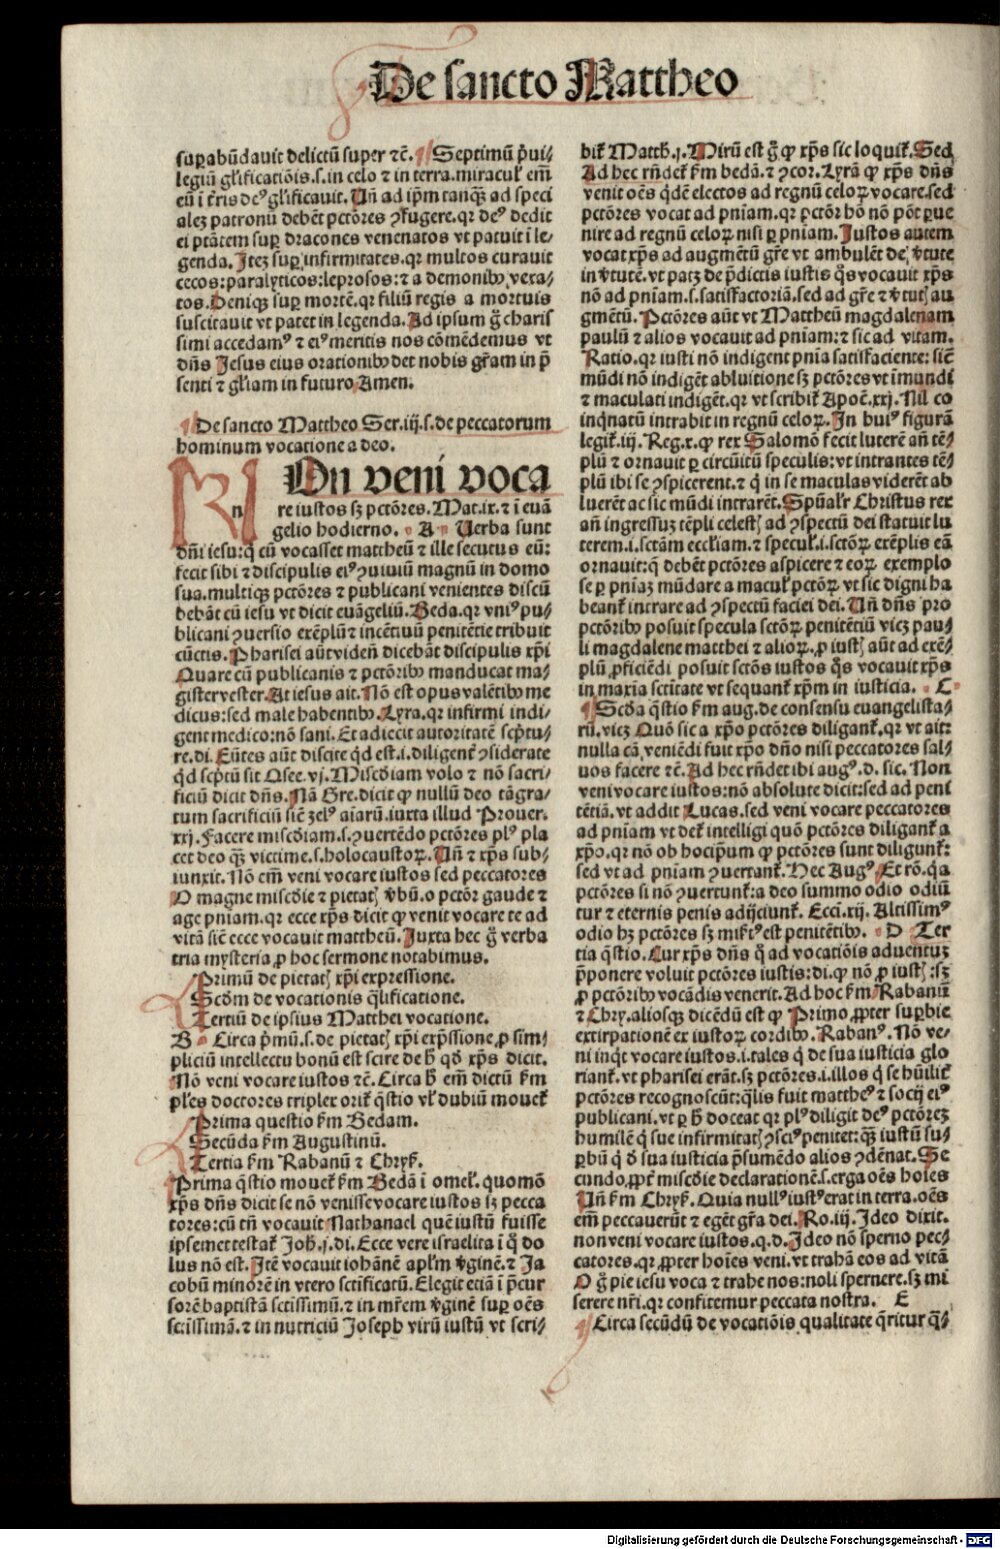 De sancto Mattheo
suꝑabūdauit delictū super ⁊c̄. ¶ Septimū p̄ui⸗
legiū gl̓ificatiōis.s.in celo ⁊ in terra.miracul̓ em̄
eū ī t̓ris deꝰ gl̓ificauit. Vn̄ ad ip̄m tanqꝫ ad speci
aleꝫ patronū debēt pctōres ꝯfugere.qr deꝰ dedit
ei ptātem suꝑ dracones venenatos vt patuit ī le⸗
genda. Iteꝫ suꝑ infirmitates.qr multos curauit
cecos:paralyticos:leprosos:⁊ a demonibꝰ vexa⸗
tos. Deniqꝫ suꝑ mortē.qr filiū regis a mortuis
suscitauit vt patet in legenda. Ad ipsum g̊ charis
simi accedamꝰ ⁊ eiꝰ meritis nos cōmēdemus vt
dn̄s Jesus eius orationibꝰ det nobis gr̄am in p̄
senti ⁊ gl̓iam in futuro Amen.
¶ De sancto Mattheo Ser.iij.s.de peccatorum
hominum vocatione a deo.
NOn veni voca
re iustos sꝫ pctōres. Mat.ix.⁊ ī euā
gelio hodierno. A Verba sunt
dn̄i iesu:q̄ cū vocasset mattheū ⁊ ille secutus eū:
fecit sibi ⁊ discipulis eiꝰ ꝯuiuiū magnū in domo
sua.multiqꝫ pctōres ⁊ publicani venientes discū
debāt cū iesu vt dicit euāgeliū. Beda.qr vniꝰ pu⸗
blicani ꝯuersio exēplū ⁊ incētiuū penitētie tribuit
cūctis. Pharisei aūt viden̄ dicebāt discipulis xp̄i
Quare cū publicanis ⁊ pctōribꝰ manducat ma⸗
gister vester. At iesus ait. Nō est opus valētibꝰ me
dicus:sed male habentibꝰ. Lyra.qr infirmi indi⸗
gent medico:nō sani. Et adiecit autoritatē scp̄tu⸗
re.di. Eūtes aūt discite qd̓ est.i.diligent̓ ꝯsiderate
qd̓ scp̄tū sit Osee.vj. Miscd̓iam volo ⁊ nō sacri⸗
ficiū dicit dn̄s. Nā Gre.dicit ꝙ nullū deo tā gra⸗
tum sacrificiū sic̄ zelꝰ aīarū.iuxta illud Prouer.
xxj. Facere miscd̓iam.s.ꝯuertēdo pctōres plꝰ pla
cet deo qꝫ victime.s.holocaustoꝝ. Vn̄ ⁊ xp̄s sub⸗
iunxit. Nō em̄ veni vocare iustos sed peccatores
O magne miscd̓ie ⁊ pietatꝭ v̓bū.o pctōr gaude ⁊
age pn̄iam.qr ecce xp̄s dicit ꝙ venit vocare te ad
vitā sic̄ ecce vocauit mattheū. Juxta hec g̊ verba
tria mysteria ꝓ hoc sermone notabimus.
Primū de pietatꝭ xp̄i expressione.
Scd̓m de vocationis q̄lificatione.
Tertiū de ipsius Matthei vocatione.
B Circa p̄mū.s.de pietatꝭ xp̄i exp̄ssione ꝓ sim⸗
pliciū intellectu bonū est scire de h̄ qd̓ xp̄s dicit.
Nō veni vocare iustos ⁊c̄. Circa h̄ em̄ dictū ẜm
pl̓es doctores triplex orit̓ q̄stio vl̓ dubiū mouet̓
Prima questio ẜm Bedam.
Secūda ẜm Augustinū.
Tertia ẜm Rabanū ⁊ Chryſ̓.
Prima q̄stio mouet̓ ẜm Bedā ī omel̓. quomō
xp̄s dn̄s dicit se nō venisse vocare iustos sꝫ pecca
tores:cū tn̄ vocauit Nathanael quē iustū fuisse
ipsemet testat̓ Joh̓.j.di. Ecce vere israelita ī q̊ do
lus nō est. Itē vocauit iohānē apl̓m v̓ginē.⁊ Ja
cobū minorē in vtero sctīficatū. Elegit etiā ī p̄cur
sorē baptistā sctīssimū.⁊ in mr̄em v̓ginē suꝑ oēs
sctīssimā.⁊ in nutriciū Joseph virū iustū vt scri⸗
bit̓ Matth.j. Mirū est g̊ ꝙ xp̄s sic loquit̓. Sed
Ad hec rn̄det̓ ẜm bedā.⁊ ꝯcor. Lyrā ꝙ xp̄s dn̄s
venit oēs qd̓ē electos ad regnū celoꝝ vocare.sed
pctōres vocat ad pn̄iam.qr pctōr hō nō pōt ꝑue
nire ad regnū celoꝝ nisi ꝑ pn̄iam. Iustos autem
vocat xp̄s ad augmētū gr̄e vt ambulēt de v̓tute
in v̓tutē.vt patꝫ de p̄dictis iustis q̊s vocauit xp̄s
nō ad pn̄iam.s.satisfactoriā.sed ad gr̄e ⁊ v̓tutꝭ au
gmētū. Pctōres aūt vt Mattheū magdalenam
paulū ⁊ alios vocauit ad pn̄iam:⁊ sic ad vitam.
Ratio.qr iusti nō indigent pn̄ia satisfaciente: sic̄
mūdi nō indigēt ablutione sꝫ pctōres vt īmundi
⁊ maculati indigēt.qr vt scribit̓ Apoc̄.xxj. Nil co
inq̄natū intrabit in regnū celoꝝ. In huiꝰ figurā
legit̓.iij. Reg.x.ꝙ rex Salomō fecit luterē an̄ tē⸗
plū ⁊ ornauit ꝑ circūitū speculis:vt intrantes tē⸗
plū ibi se ꝯspicerent.⁊ q̄ in se maculas viderēt ab
luerēt ac sic mūdi intrarēt. Spūal̓r Christus rex
an̄ ingressuꝫ tēpli celestꝭ ad ꝯspectū dei statuit lu
terem.i.sctām eccl̓iam.⁊ specul̓.i.sctōꝝ exēplis eā
ornauit:q̄ debēt pctōres aspicere ⁊ eoꝝ exemplo
se ꝑ pn̄iaꝫ mūdare a macul̓ pctōꝝ vt sic digni ha
beant̓ intrare ad ꝯspectū faciei dei. Vn̄ dn̄s pro
pctōribꝰ posuit specula sctōꝝ penitētiū vicꝫ pau⸗
li magdalene matthei ⁊ alioꝝ.ꝓ iustꝭ aūt ad exē⸗
plū ꝓficiēdi posuit sctōs iustos q̊s vocauit xp̄s
in maxīa sctītate vt sequant̓ xp̄m in iusticia. C
¶ Scd̓a q̄stio ẜm aug.de consensu euangelista⸗
rū.vicꝫ Quō sic a xp̄o pctōres diligant̓.qr vt ait:
nulla cā veniēdi fuit xp̄o dn̄o nisi peccatores sal⸗
uos facere ⁊c̄. Ad hec rn̄det ibi augꝰ.d. sic. Non
veni vocare iustos:nō absolute dicit:sed ad peni
tētiā.vt addit Lucas.sed veni vocare peccatores
ad pn̄iam vt det̓ intelligi quō pctōres diligant̓ a
xp̄o.qr nō ob hoc ip̄um ꝙ pctōres sunt diligunt̓:
sed vt ad pn̄iam ꝯuertant̓. Hec Augꝰ. Et rō.q̄a
pctōres si nō ꝯuertunt̓:a deo summo odio odiū
tur ⁊ eternis penis adijciunt̓. Ecci̓.xij. Altissimꝰ
odio hꝫ pctōres sꝫ mis̓tꝰ est penitētibꝰ. D Ter
tia q̄stio. Cur xp̄s dn̄s q̊ ad vocatiōis aduentuꝫ
p̄ponere voluit pctōres iustis:di.ꝙ nō ꝓ iustꝭ:sꝫ
ꝓ pctōribꝰ vocādis venerit. Ad hoc ẜm Rabanū
⁊ Chry.aliosqꝫ dicēdū est ꝙ Primo ꝓpter suꝑbie
extirpationē ex iustoꝝ cordibꝰ. Rabanꝰ. Nō ve⸗
ni inq̄t vocare iustos.i.tales q̄ de sua iusticia glo
riant̓.vt pharisei erāt.sꝫ pctōres.i.illos q̄ se hūilit̓
pctōres recognoscūt:q̄lis fuit mattheꝰ ⁊ socij eiꝰ
publicani.vt ꝑ h̄ doceat qr plꝰ diligit deꝰ pctōreꝫ
humilē q̄ sue infirmitatꝭ ꝯsciꝰ penitet:qꝫ iustū su⸗
ꝑbū q̄ d̓ sua iusticia p̄sumēdo alios ꝯdēnat. Se
cundo ꝓpt̓ miscd̓ie declarationē.s.erga oēs hoīes
Vn̄ ẜm Chryſ̓. Quia nullꝰ iustꝰ erat in terra.oēs
em̄ peccauerūt ⁊ egēt gr̄a dei. Ro.iij. Ideo dixit.
non veni vocare iustos.q.d. Ideo nō sperno pec⸗
catores.qr ꝓpter hoīes veni.vt trahā eos ad vitā
O g̊ pie iesu voca ⁊ trahe nos:noli spernere.sꝫ mi
serere nr̄i.qr confitemur peccata nostra. E
¶ Circa secūdū de vocatiōis qualitate q̄ritur q̄⸗
Digitalisierung gefördert durch die Deutsche Forschungsgemeinschaft - DFG